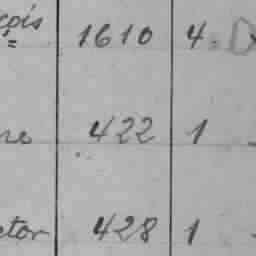 çois 1610 4
ne 422 1
ctor 428 1